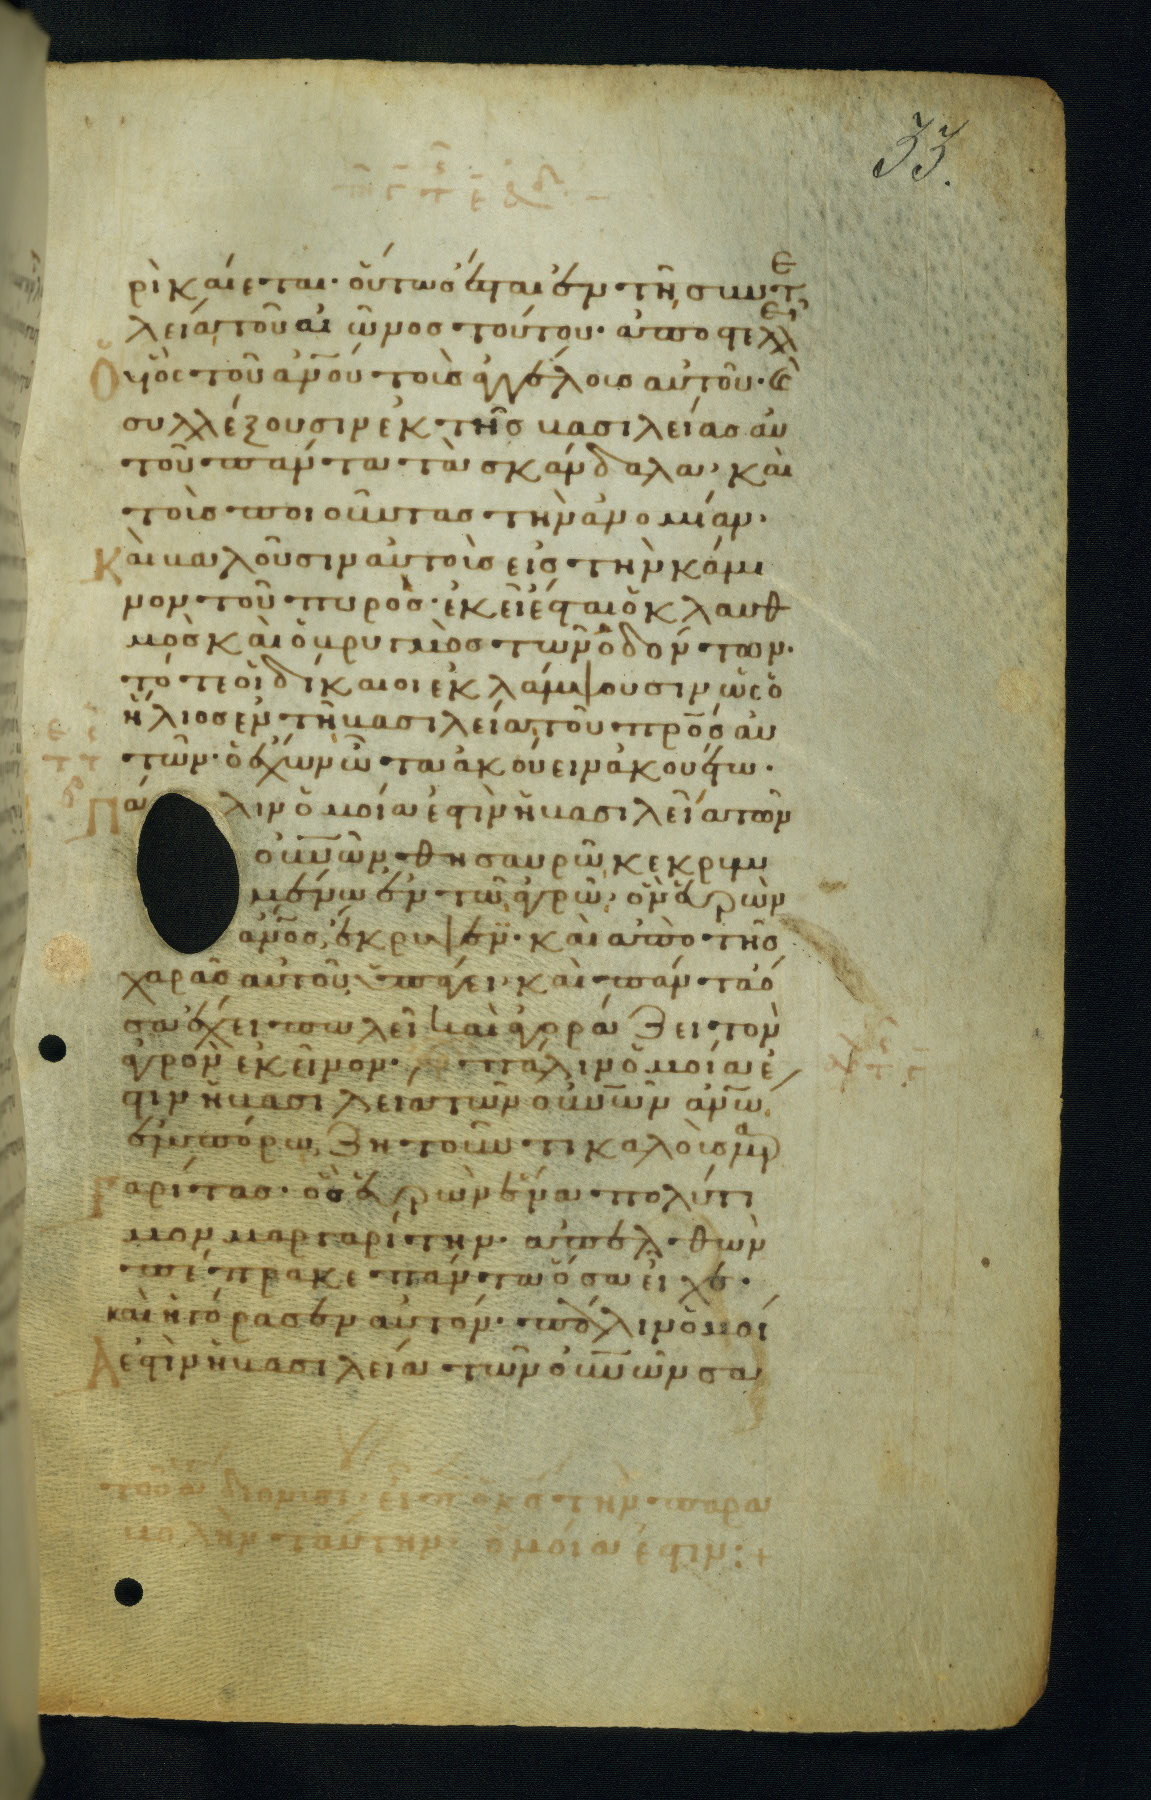 33.
ρὶ καίεται· οὕτωσ ἔσται ἐν τῆ συντε
λεία τοῦ αἰῶνοσ τούτου· ἀποστελεῖ
Ὁ υἱὸς τοῦ ἀν̅ου τοὺσ ἀγγέλουσ αὐτοῦ· κ̀
συλλέξουσιν ἐκ τῆσ βασιλείασ αυ
τοῦ πάντα τὰ σκάνδαλα, καὶ
τοὺσ ποιοῦντασ τὴν ἀνομίαν·
Καὶ βαλοῦσιν αὐτοὺσ εἰσ τὴν κάμι
νον τοῦ πυρόσ· ἐκεῖ ἔσται ὁ κλαυθ
μὸσ καὶ ὁ βρυγμὸσ τῶν ὀδόντων·
τότε οἱ δίκαιοι ἐκλάμψουσιν ὡς ὁ
ἥλιοσ ἐν τῆ βασιλεία τοῦ πρ̅σ αυ
τῶν· ὁ ἔχων ὦτα ἀκούειν ἀκουέτω·
Πάλιν ὁμοία ἐστὶν ἡ βασιλεία τῶν
οὐν̅ῶν θησαυρῶ κεκρυμ
μένω ἐν τῶ ἀγρῶ, ὃν εὑρὼν
ἀν̅οσ ἔκρυψεν· καὶ ἀπὸ τῆσ
χαρᾶσ αὐτοῦ ὑπάγει, καὶ πάντα ὅ
σα ἔχει πωλεῖ καὶ ἀγοράζει τὸν
ἀγρὸν ἐκεῖνον· πάλιν ὁμοία ἐ
στὶν ἡ βασιλεία τῶν οὐν̅ῶν ἀν̅ω
ἐμπόρω ζητοῦντι καλοὺσ μαρ
γαρίτασ· ὃσ εὑρὼν ἕνα πολύτι
μον μαργαρίτην· ἀπελθὼν
πέπρακε πάντα ὅσα εἶχε·
καὶ ἠγόρασεν αὐτόν· πάλιν ὁμοί
Α ἐστὶν ἡ βασιλεία τῶν οὐν̅ῶν σα
τὴν παρα
βολὴν ταύτην· ὁμοία ἐστὶν :+